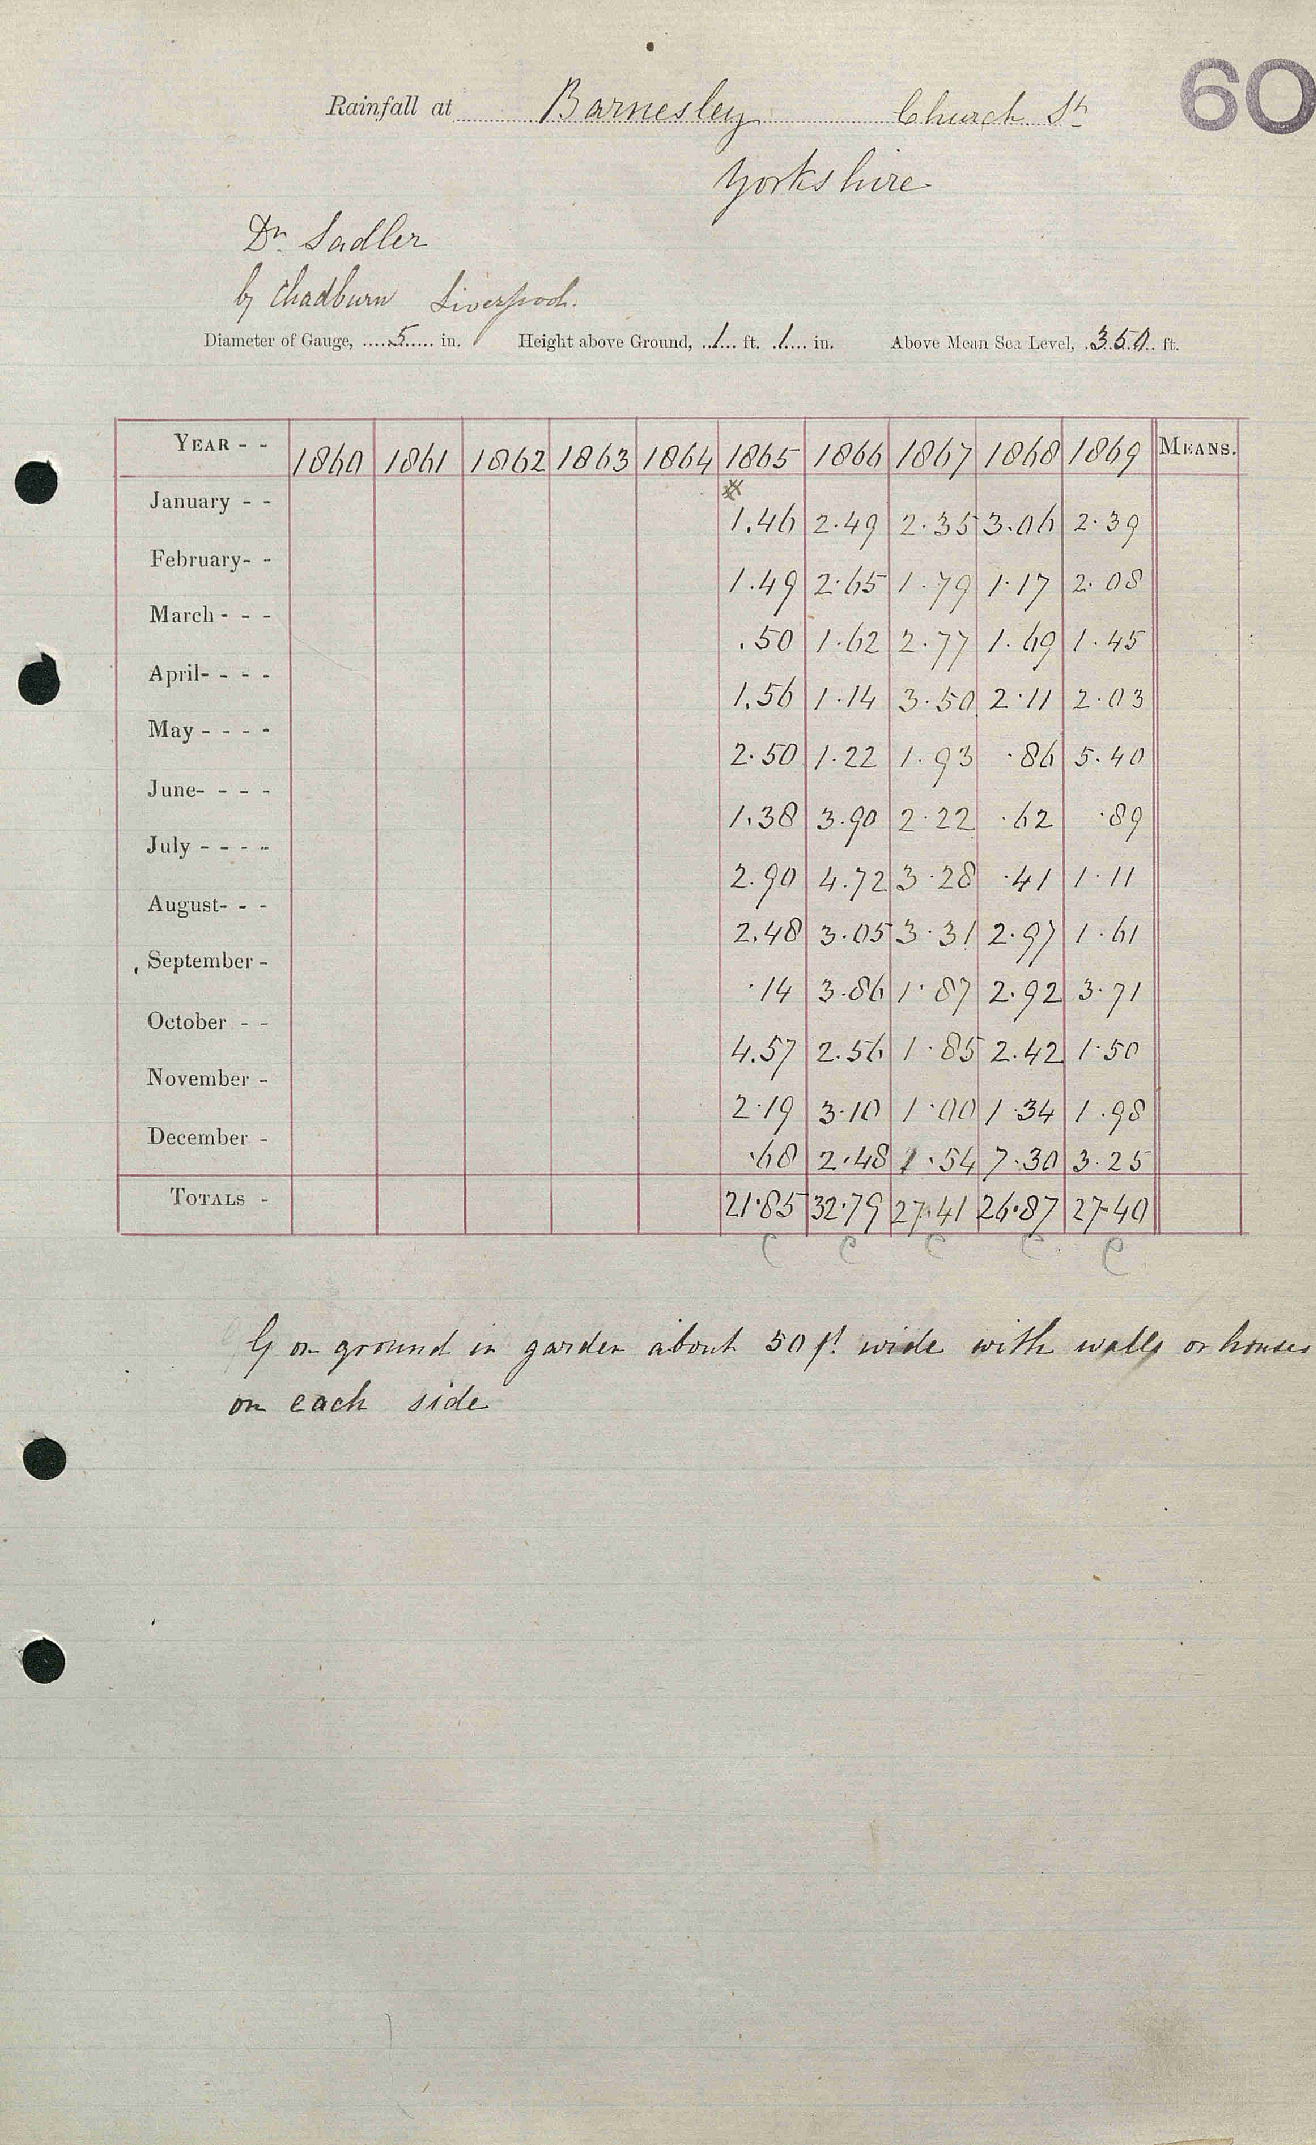 60
Rainfall at Barnesley Church St
Yorkshire
Dr. Sadler
by Chadburn Liverpool.
Diameter of Gauge, 5 in. Height above Ground, 1 ft. 1 in. Above Mean Sea Level, 350 ft.
YEAR - - 1860 1861 1862 1863 1864 1865 1866 1867 1868 1869 MEANS.
January - - 1.46 2.49 2.35 3.06 2.39
February- - 1.49 2.65 1.79 1.17 2.08
March - - - .50 1.62 2.77 1.69 1.45
April- - - - 1.56 1.14 3.50 2.11 2.03
May - - - - 2.50 1.22 1.93 .86 5.40
June- - - - 1.38 3.90 2.22 .62 .89
July - - - - 2.90 4.72 3.28 .41 1.11
August- - - 2.48 3.05 3.31 2.97 1.61
September - .14 3.86 1.87 2.92 3.71
October - - 4.57 2.56 1.85 2.42 1.50
November - 2.19 3.10 1.00 1.34 1.98
December - .68 2.48 1.54 7.30 3.25
TOTALS - 21.85 32.79 27.41 26.87 27.40
G on ground in garden about 50 ft. wide with walls or houses
on each side